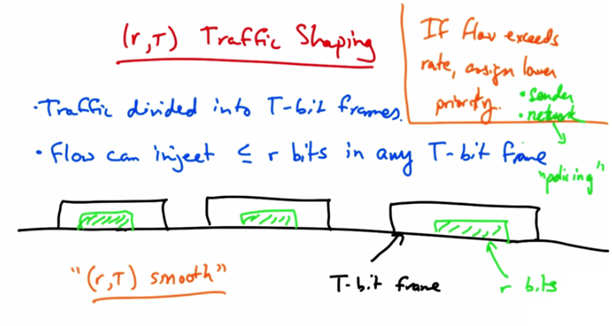 (r,T) Traffic Shaping
If flow exceeds
rate, assign lower
priority.
• sender
• network
"policing"
• Traffic divided into T-bit frames.
• Flow can inject ≤ r bits in any T-bit frame
"(r,T) smooth"
T-bit frame
r bits